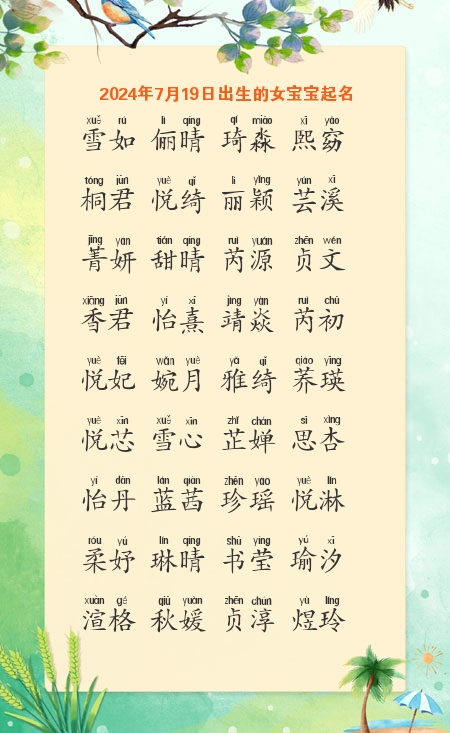 2024年7月19日出生的女宝宝起名
xuě rú lì qíng qí miǎo xī yǎo
雪如 俪晴 琦淼 熙窈
tóng jūn yuè qǐ lì yǐng yún xī
桐君 悦绮 丽颖 芸溪
jīng yán tián qíng ruì yuán zhēn wén
菁妍 甜晴 芮源 贞文
xiāng jūn yí xī jìng yàn ruì chū
香君 怡熹 靖焱 芮初
yuè fēi wǎn yuè yǎ qǐ qiáo yīng
悦妃 婉月 雅绮 荞瑛
yuè xīn xuě xīn zhǐ chán sī xìng
悦芯 雪心 芷婵 思杏
yí dān lán qiàn zhēn yáo yuè lín
怡丹 蓝茜 珍瑶 悦淋
róu yú lín qíng shū yíng yú xī
柔妤 琳晴 书莹 瑜汐
xuān gé qiū yuán zhēn chún yù líng
渲格 秋媛 贞淳 煜玲